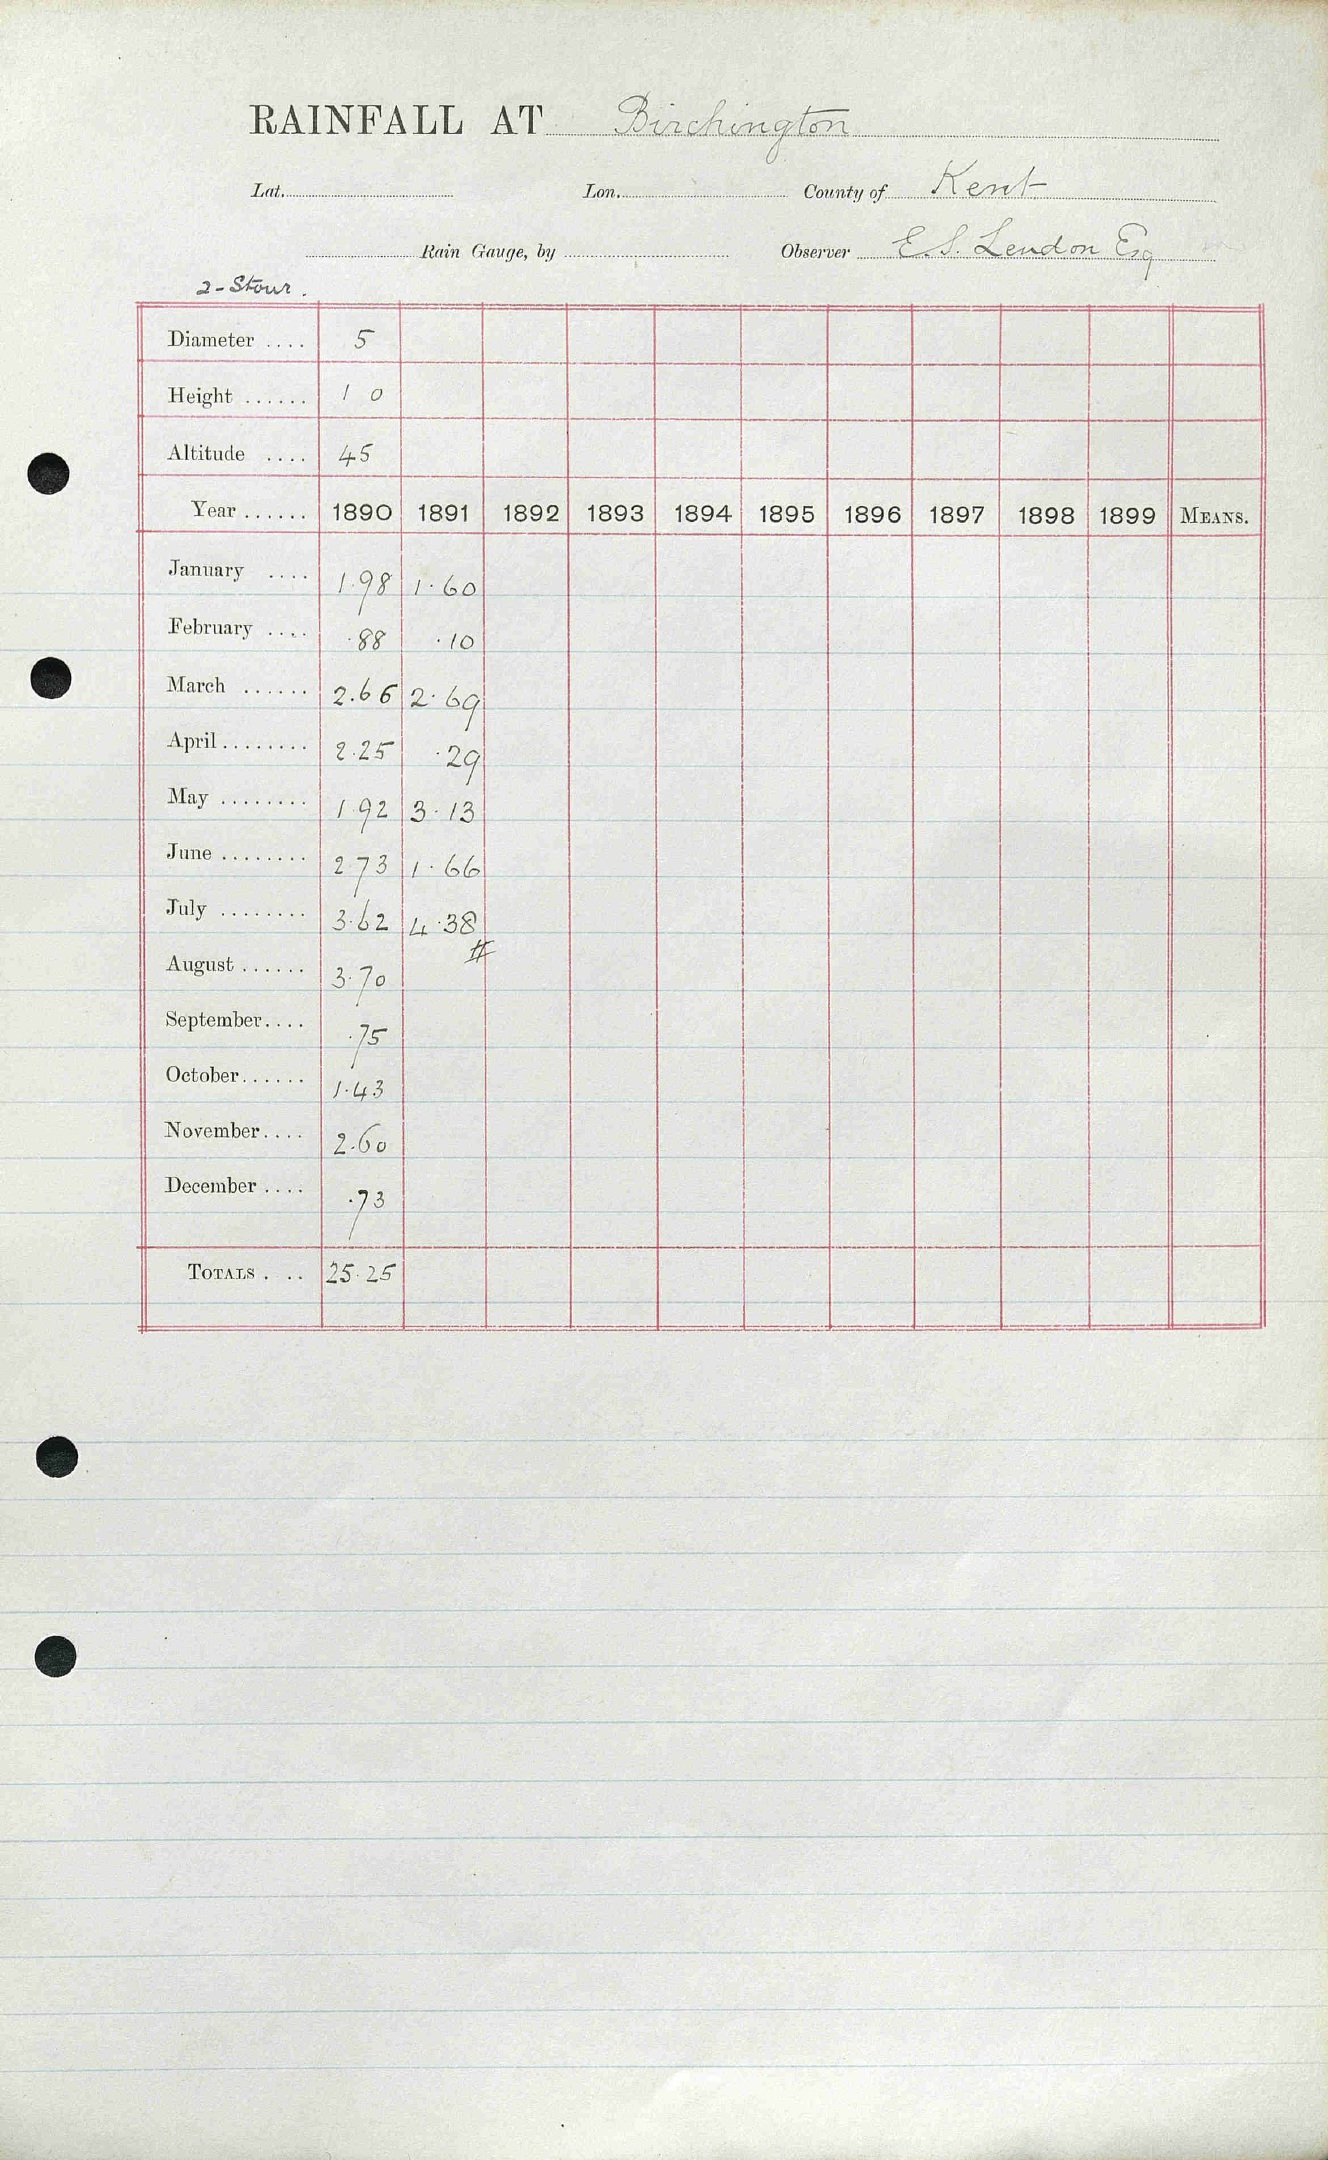 RAINFALL AT Birchington
Lat. Lon. County of Kent
Rain Gauge, by Observer E.S. Lendon Esq
2-Stour.
Diameter .... 5
Height ...... 1 0
Altitude .... 45
Year ...... 1890 1891 1892 1893 1894 1895 1896 1897 1898 1899 MEANS.
January .... 1.98 1.60
February .... .88 .10
March ...... 2.66 2.69
April ........ 2.25 .29
May ........ 1.92 3.13
June ........ 2.73 1.66
July ........ 3.62 4.38
#
August ...... 3.70
September .... .75
October ...... 1.43
November .... 2.60
December .... .73
TOTALS . .. 25.25